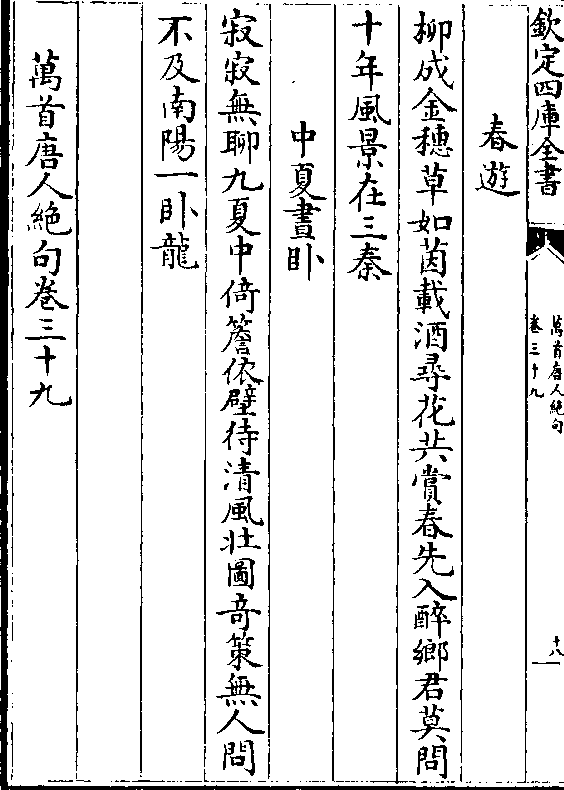 欽定四庫全書
萬首唐人絶句
卷三十九
十八
春遊
柳成金穗草如茵載酒尋花共賞春先入醉鄉君莫問
十年風景在三秦
中夏晝卧
寂寂無聊九夏中倚簷依壁待清風壯圖竒策無人問
不及南陽一卧龍
萬首唐人絶句卷三十九